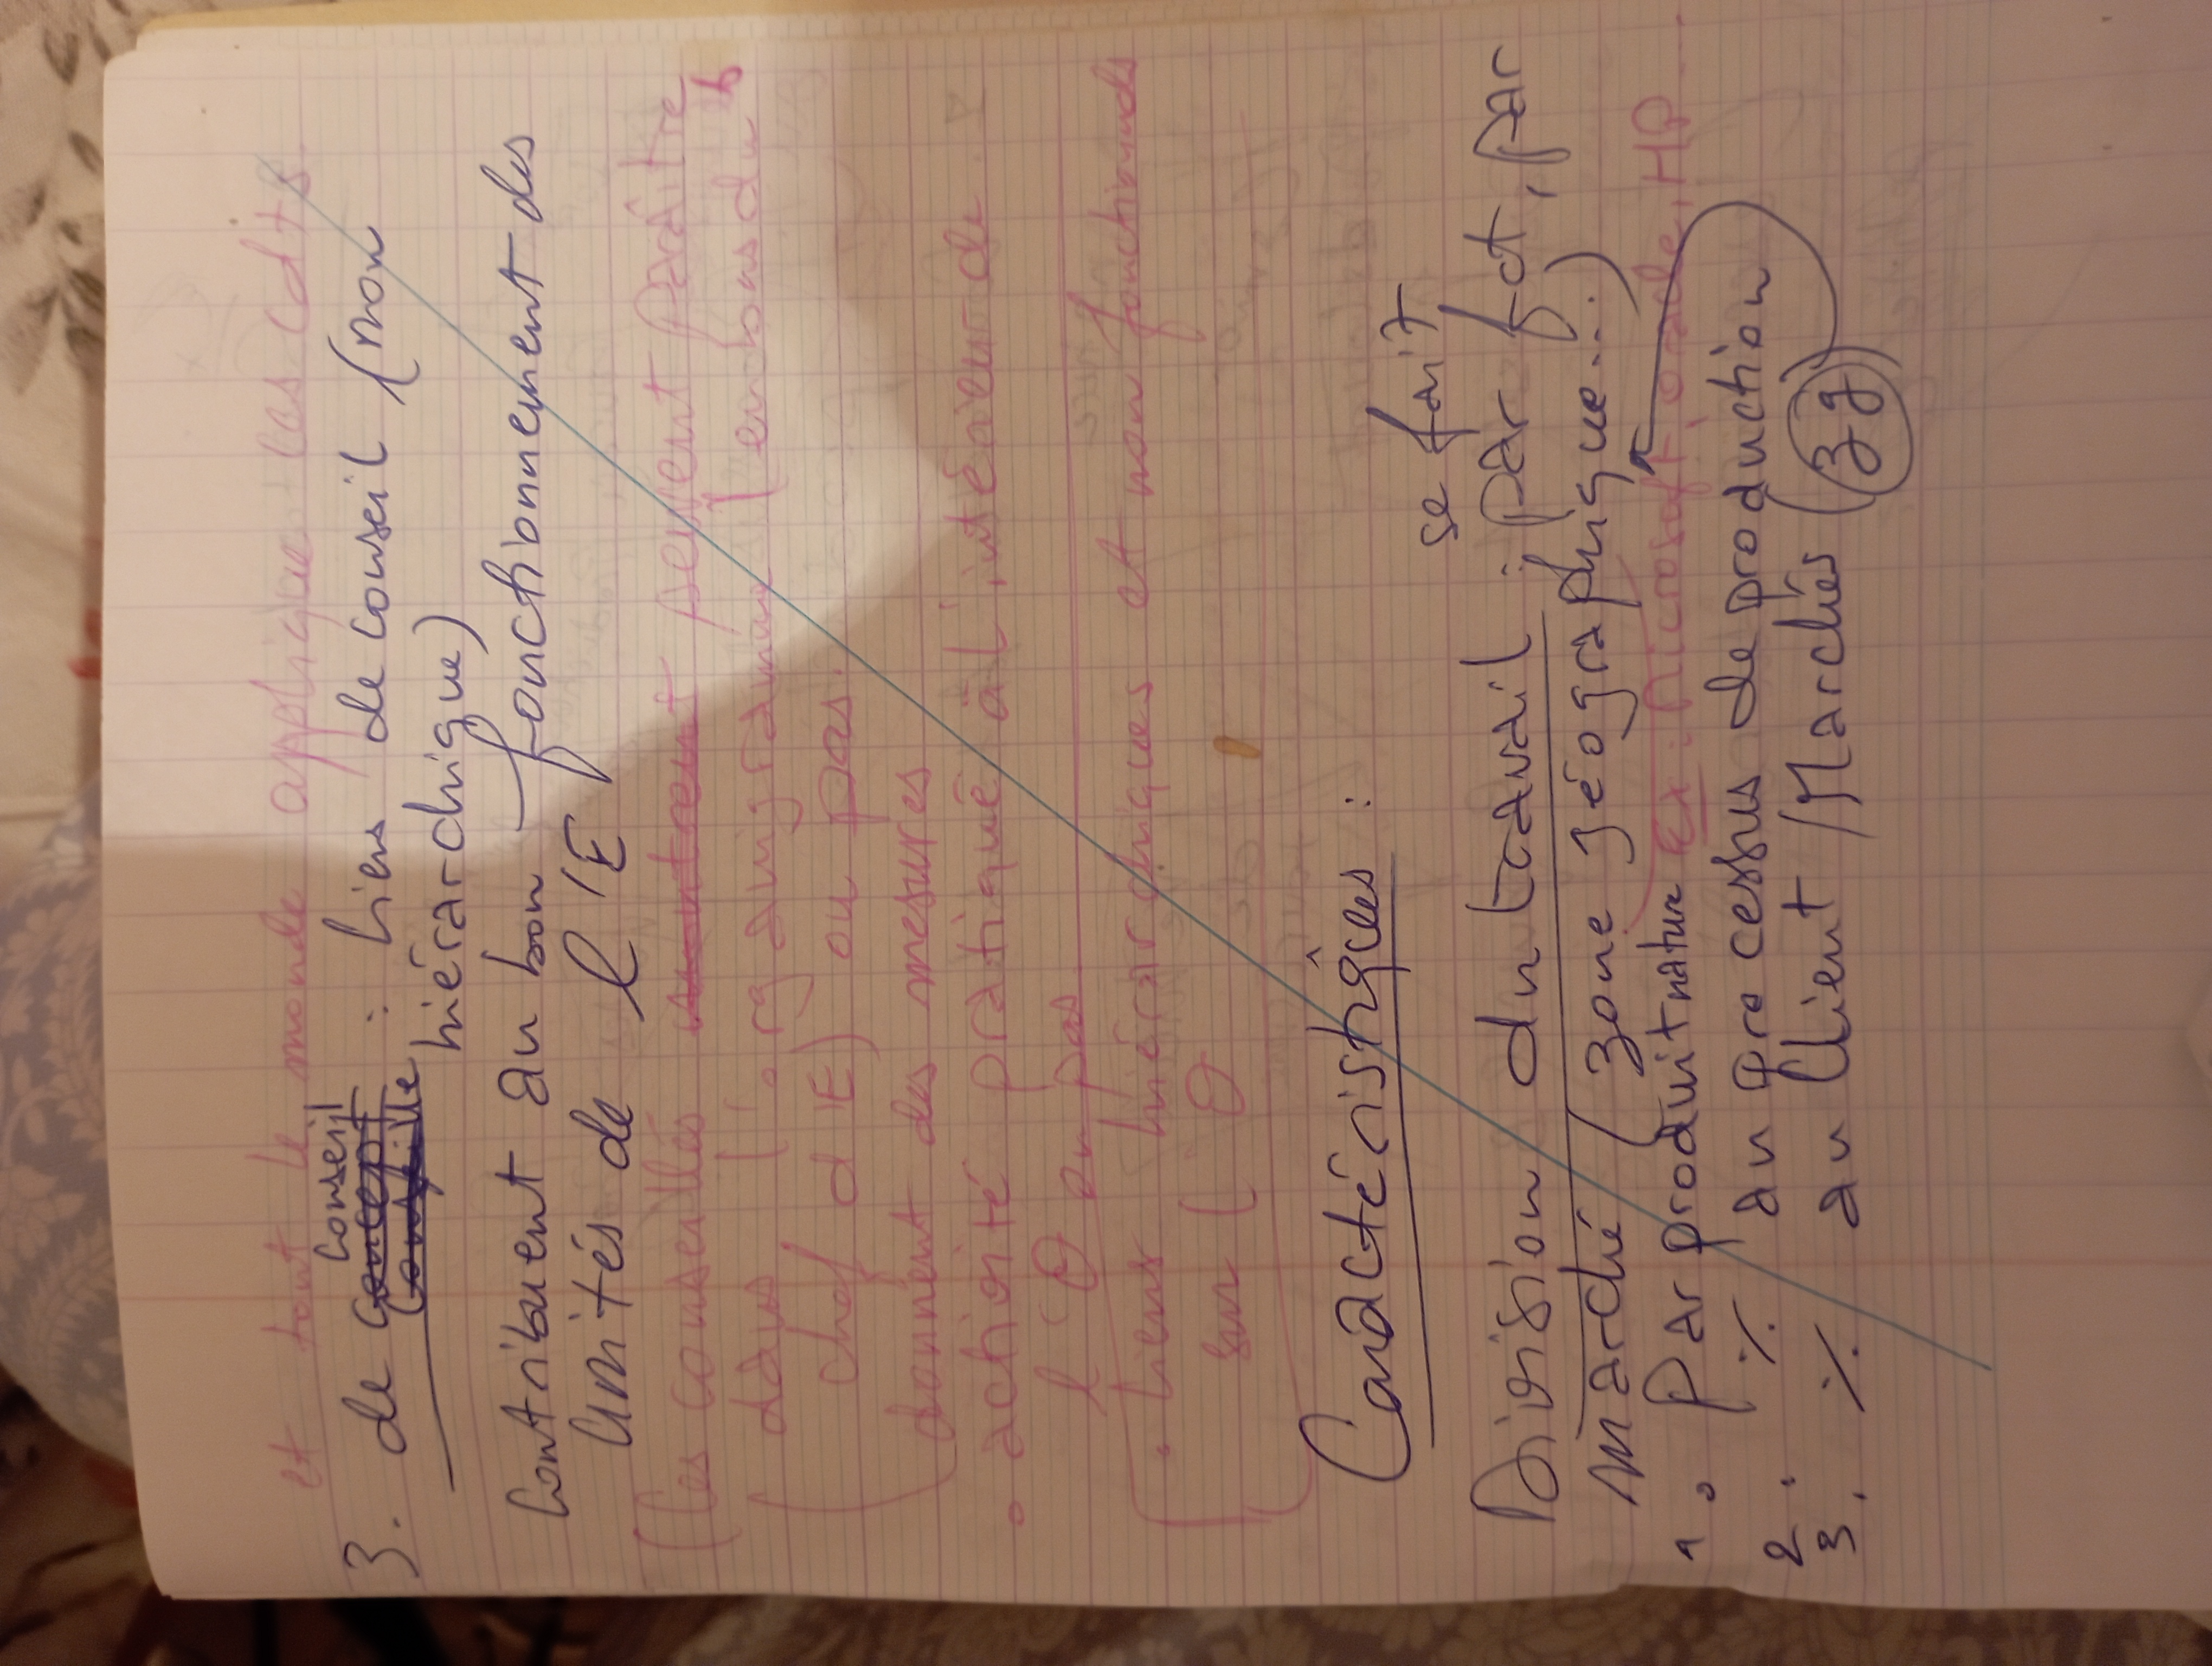 et tout le monde applique les cdts
Conseil
3. de concept : liens de conseil (non
Conseille
hiérarchique)
Contribuent au bon fonctionnement des
Unités de l'E
(les conseillés montrent peuvent paraître
dans l'organigramme (en bas du
chef d'E) ou pas.
donnent des mesures
• activité pratiqué à l'intérieur de
l'O ou pas
• liens hiérarchiques et non fonctionnels
sur l'O
Caractéristiques :
se fait
Division du travail : par fct, par
marché (zone géographique...)
1. Par produit nature Ex : Microsoft, oracle, HP ...
2. % au processus de production
3. % au Client / Marchés (zg)